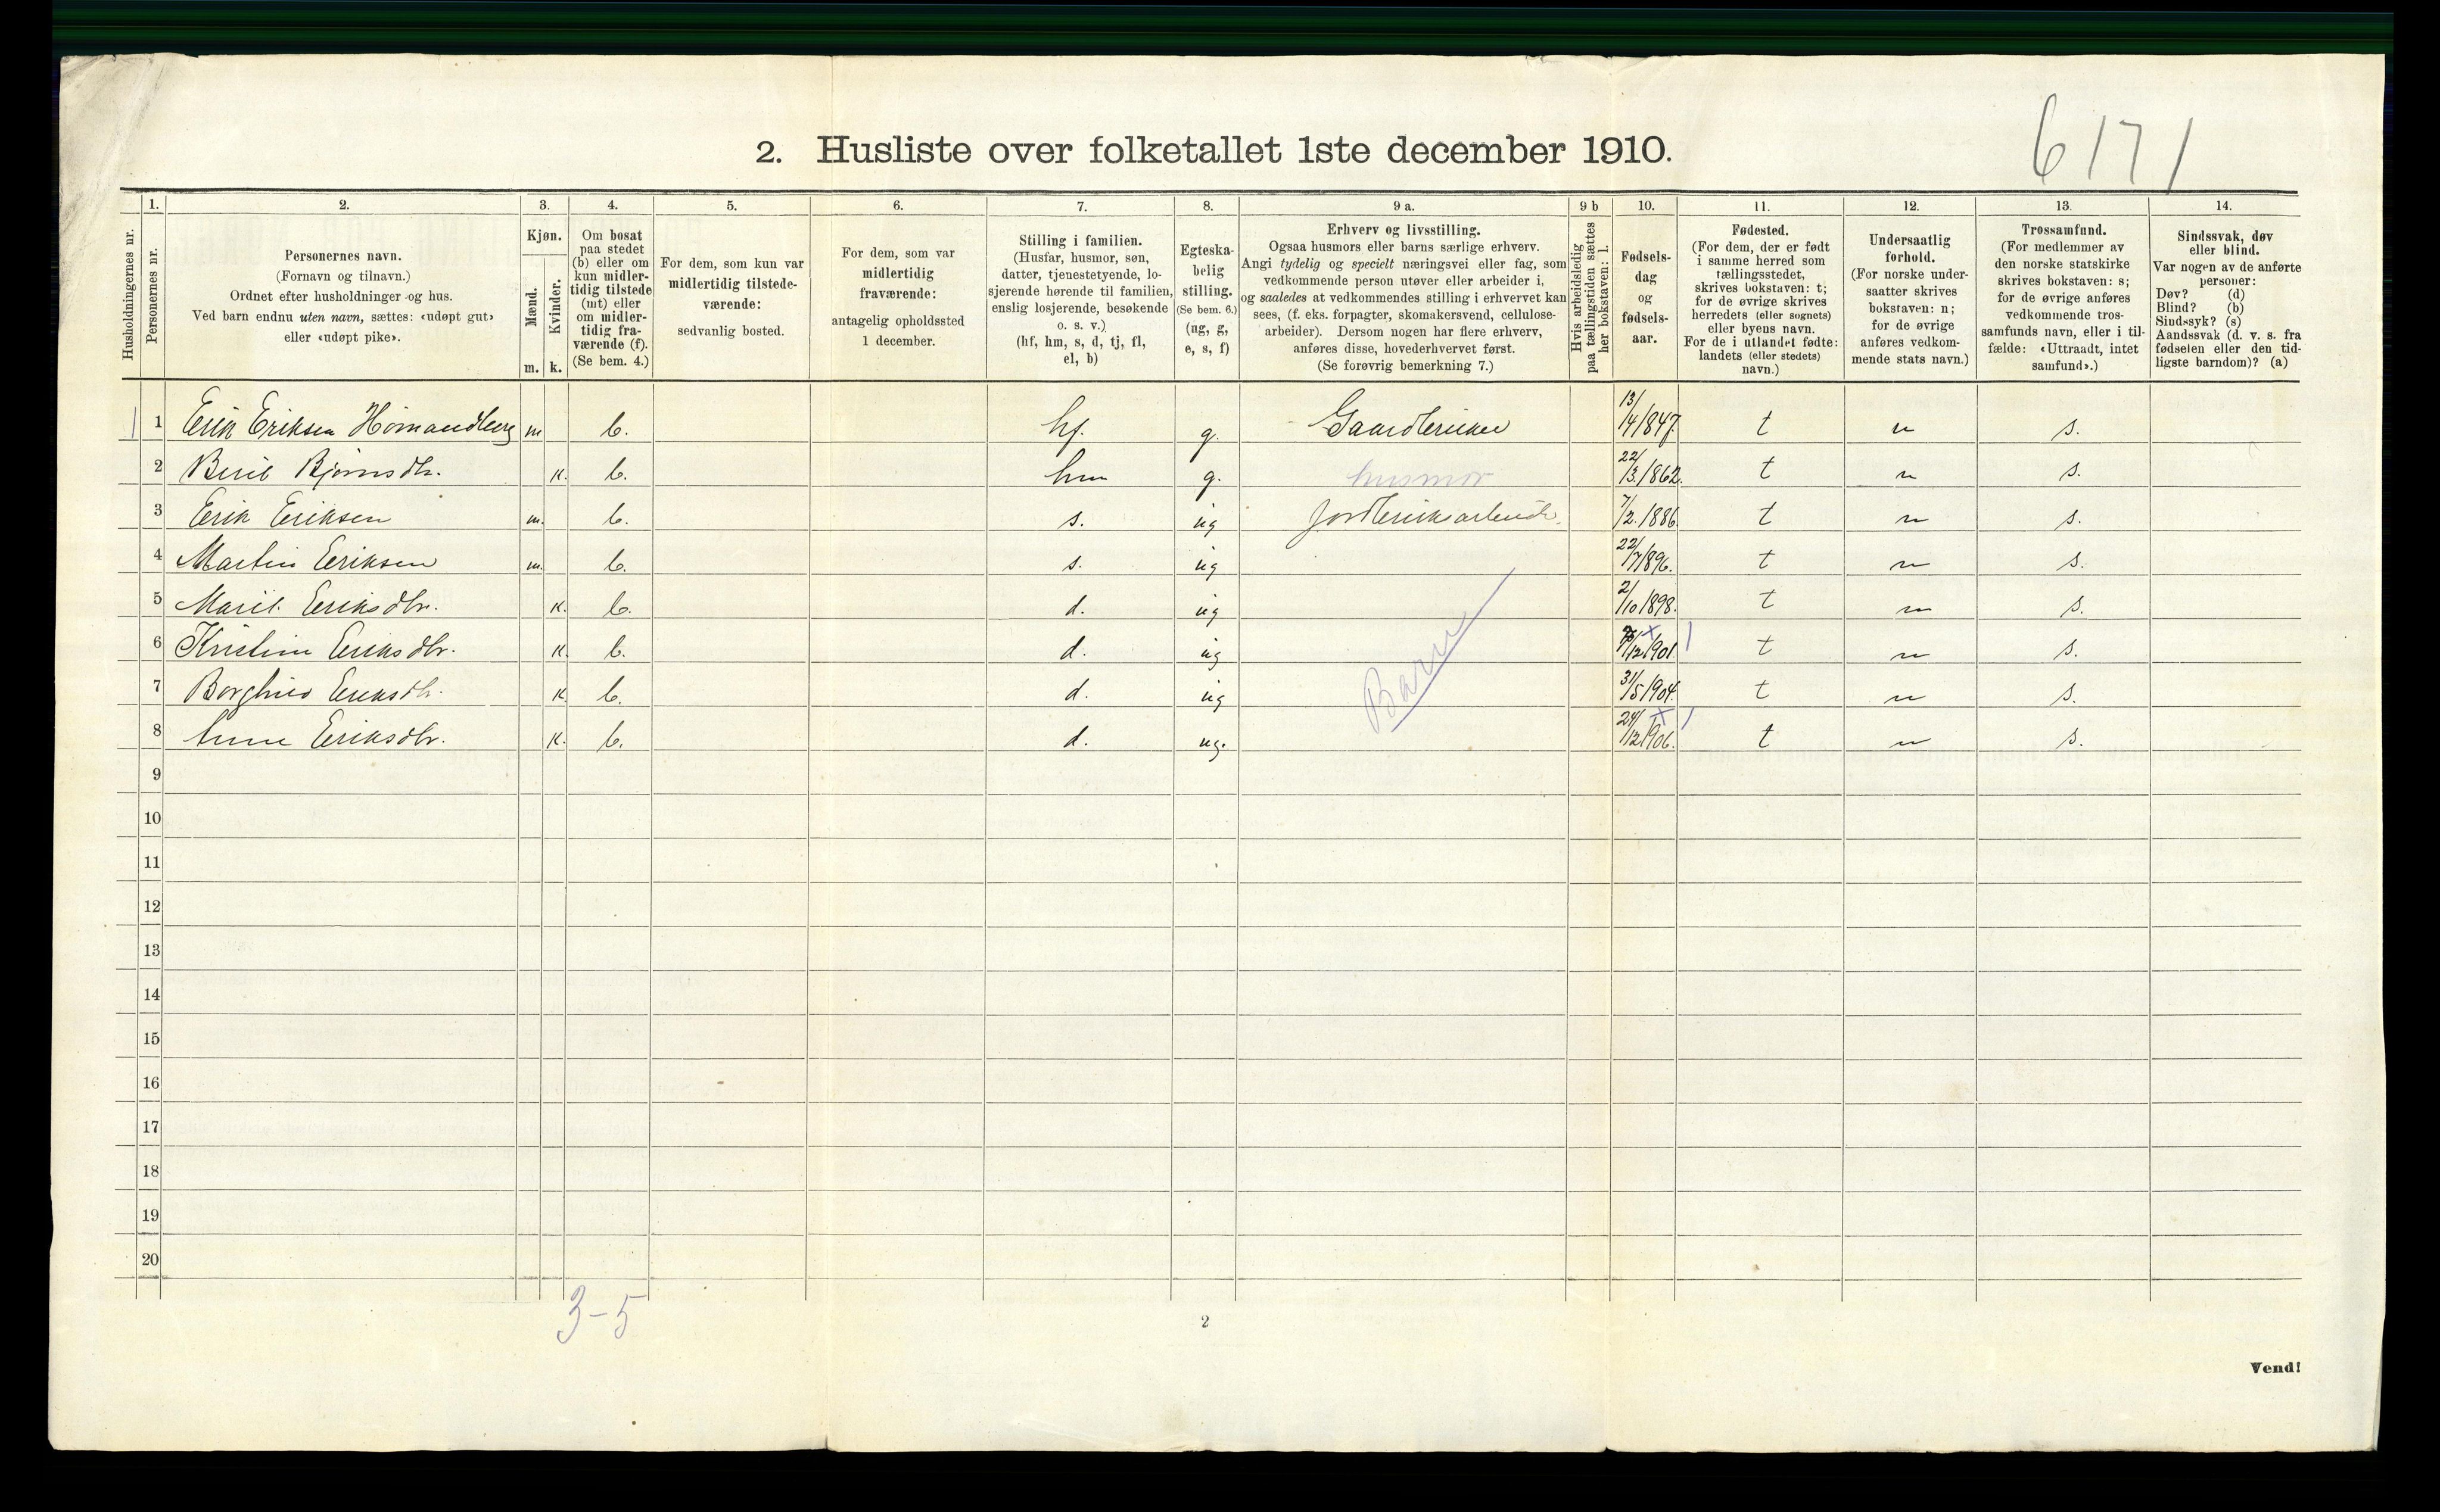 6171
2. Husliste over folketallet 1ste december 1910.
Husholdningernes nr.
1.
Personernes nr.
2.
Personernes navn.
(Fornavn og tilnavn.)
Ordnet efter husholdninger og hus.
Ved barn endnu uten navn, sættes: «udøpt gut»
eller «udøpt pike».
3.
Kjøn.
Mænd.
Kvinder.
m. k.
4.
Om bosat
paa stedet
(b) eller om
kun midler-
tidig tilstede
(mt) eller
om midler-
tidig fra-
værende (f).
(Se bem. 4.)
5.
For dem, som kun var
midlertidig tilstede-
værende:
sedvanlig bosted.
6.
For dem, som var
midlertidig
fraværende:
antagelig opholdssted
1 december.
7.
Stilling i familien.
(Husfar, husmor, søn,
datter, tjenestetyende, lo-
sjerende hørende til familien,
enslig losjerende, besøkende
o. s. v.)
(hf, hm, s, d, tj, fl,
el, b)
8.
Egteska-
belig
stilling.
(Se bem. 6.)
(ug, g,
e, s, f)
9 a.
Erhverv og livsstilling.
Ogsaa husmors eller barns særlige erhverv.
Angi tydelig og specielt næringsvei eller fag, som
vedkommende person utøver eller arbeider i,
og saaledes at vedkommendes stilling i erhvervet kan
sees, (f. eks. forpagter, skomakersvend, cellulose-
arbeider). Dersom nogen har flere erhverv,
anføres disse, hovederhvervet først.
(Se forøvrig bemerkning 7.)
9 b
Hvis arbeidsledig
paa tællingstiden sættes
her bokstaven: l.
10.
Fødsels-
dag
og
fødsels-
aar.
11.
Fødested.
(For dem, der er født
i samme herred som
tællingsstedet,
skrives bokstaven: t;
for de øvrige skrives
herredets (eller sognets)
eller byens navn.
For de i utlandet fødte:
landets (eller stedets)
navn.)
12.
Undersaatlig
forhold.
(For norske under-
saatter skrives
bokstaven: n;
for de øvrige
anføres vedkom-
mende stats navn.)
13.
Trossamfund.
(For medlemmer av
den norske statskirke
skrives bokstaven: s;
for de øvrige anføres
vedkommende tros-
samfunds navn, eller i til-
fælde: «Uttraadt, intet
samfund».)
14.
Sindssvak, døv
eller blind.
Var nogen av de anførte
personer:
Døv? (d)
Blind? (b)
Sindssyk? (s)
Aandssvak (d. v. s. fra
fødselen eller den tid-
ligste barndom)? (a)
1 1 Erik Eriksen Hömandberg m b. hf. g. Gaardbruker 13/4 1847. t n s.
2 Berit Bjørnsdtr. k. b. hm g. husmor 22/3. 1862. t n s.
3 Erik Eriksen m. b. s. ug Jordbruksarbeider. 7/2. 1886 t n s.
4 Martin Eriksen m. b. s. ug 22/7 1896. t n s.
5 Marit Eriksdtr. k. b. d. ug 2/10 1898. t n s.
6 Kristine Eriksdtr. k. b. d. ug /12 1901 t n s.
7 Borghild Eriksdtr. k. b. d. ug 31/5 1904. t n s.
8 Anne Eriksdtr. k. b. d. ug. 24/12 1906. t n s.
Barn
9
10
11
12
13
14
15
16
17
18
19
20
3-5
2
Vend!